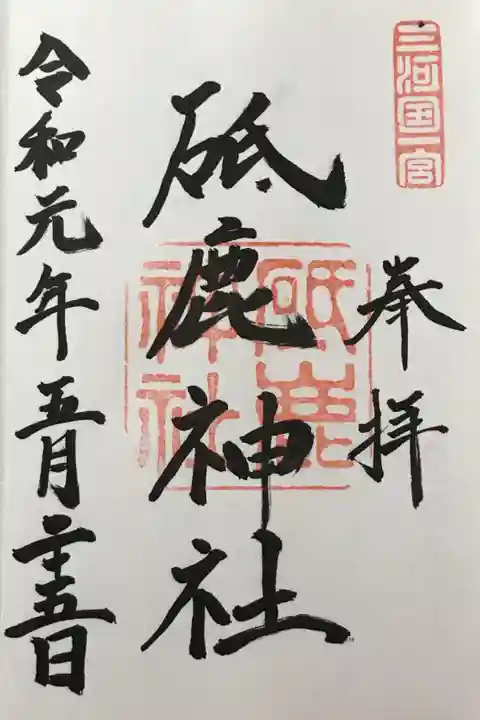 三河国一宮
奉拝
砥鹿神社
砥鹿
神社
令和元年五月二十五日